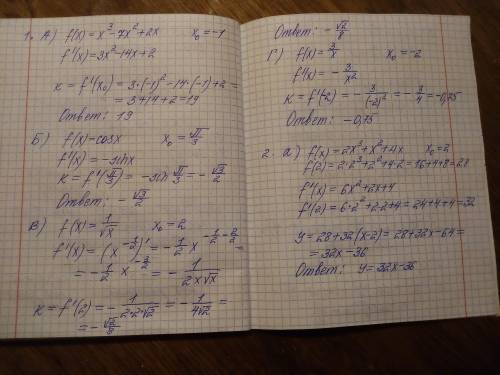 1. А) f(x) = x³ - 7x² + 2x x₀ = -1
f'(x) = 3x² - 14x + 2
к = f'(x₀) = 3·(-1)² - 14·(-1) + 2 =
= 3 + 14 + 2 = 19
Ответ: 19
Б) f(x) = cosx x₀ = π/3
f'(x) = -sinx
к = f'(π/3) = -sin π/3 = -√3/2
Ответ: -√3/2
В) f(x) = 1/√x x₀ = 2
f'(x) = (x^(-1/2))' = -1/2 x^(-1/2 - 2/2) =
= -1/2 x^(-3/2) = -1/(2x√x)
к = f'(2) = -1/(2·2√2) = -1/(4√2) =
= -√2/8
Ответ: -√2/8
Г) f(x) = 3/x x₀ = -2
f'(x) = -3/x²
к = f'(-2) = -3/(-2)² = -3/4 = -0,75
Ответ: -0,75
2. а) f(x) = 2x³ + x² + 4x x₀ = 2
f(2) = 2·2³ + 2² + 4·2 = 16 + 4 + 8 = 28
f'(x) = 6x² + 2x + 4
f'(2) = 6·2² + 2·2 + 4 = 24 + 4 + 4 = 32
y = 28 + 32(x-2) = 28 + 32x - 64 =
= 32x - 36
Ответ: y = 32x - 36